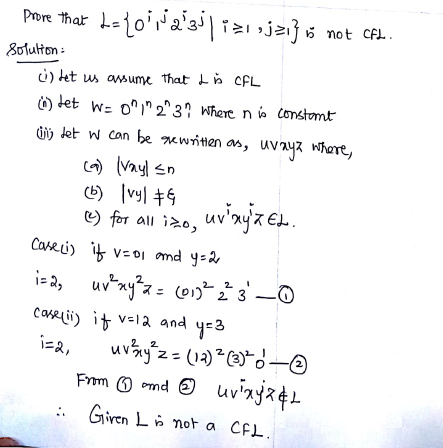 Prove that L={0ⁱ1ʲ2ⁱ3ʲ | i≥1, j≥1} is not CFL.
Solution:
(i) Let us assume that L is CFL
(ii) Let W= 0ⁿ1ⁿ2ⁿ3ⁿ, where n is constant
(iii) Let W can be rewritten as, uvxyz where,
(a) |vxy| ≤n
(b) |vy| ≠ε
(c) for all i≥0, uvⁱxyⁱz ∈L.
Case(i) if v=01 and y=2
i=2, uv²xy²z = (01)² 2² 3¹ —①
Case(ii) if v=12 and y=3
i=2, uv²xy²z = (12)²(3)² 0¹ —②
From ① and ② uvⁱxyⁱz∉L
∴ Given L is not a CFL.